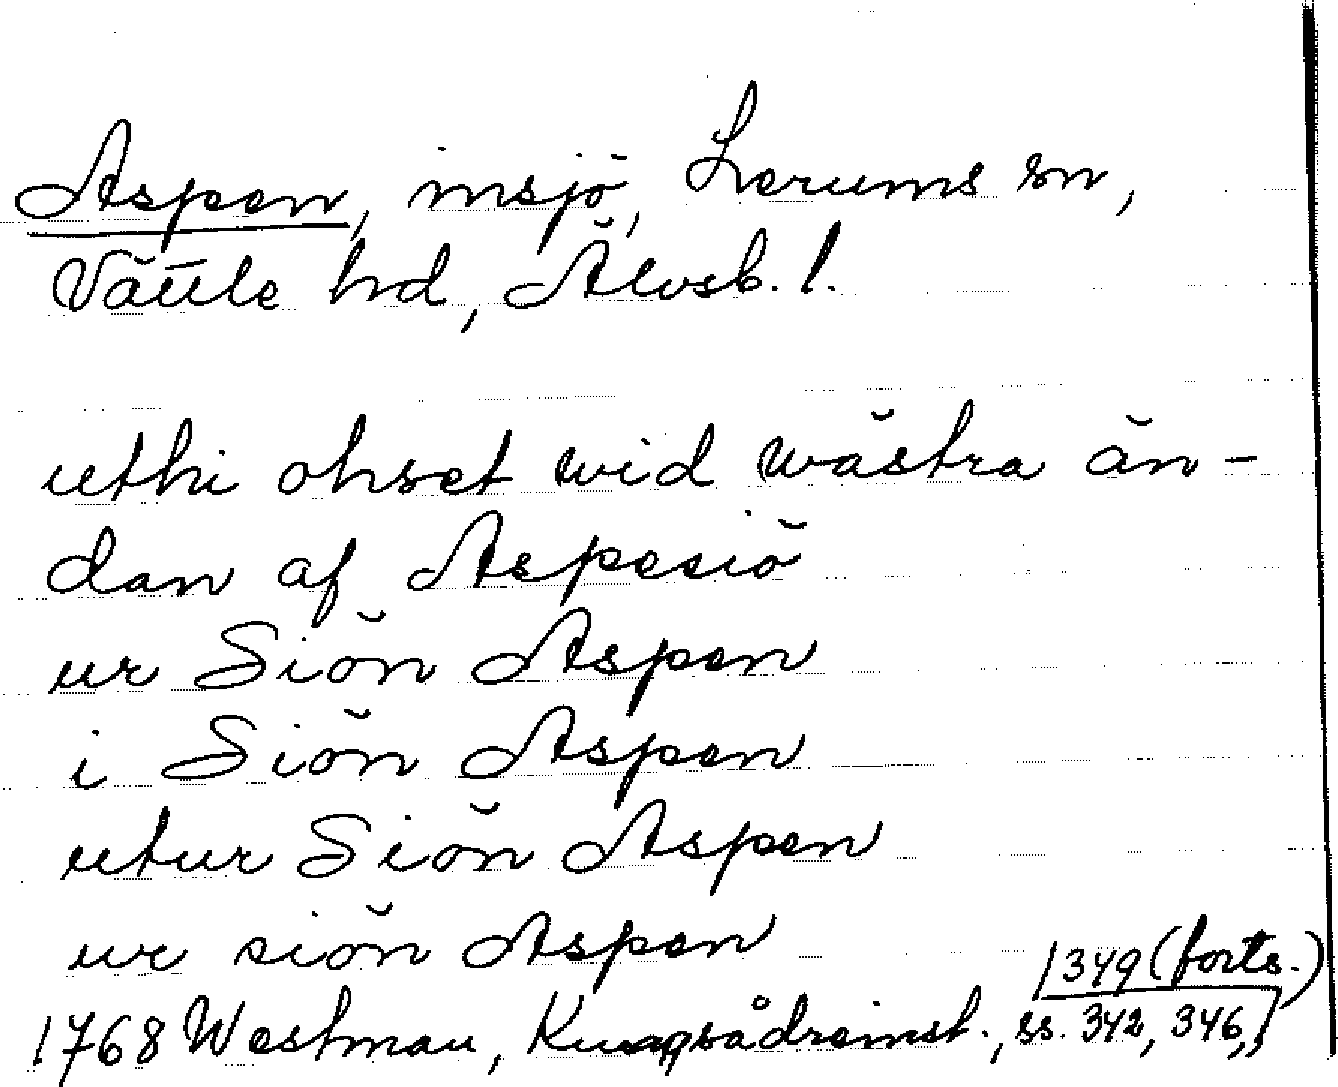 Aspen, insjö, Lerums sn,
Vättle hd, Älvsb. l.
uthi ohset wid wästra än-
dan af Aspesiö
ur Siön Aspen
i Siön Aspen
utur Siön Aspen
ur siön Aspen
349 (forts.)
1768 Westman, Kungsådreinst., ss. 342, 346,